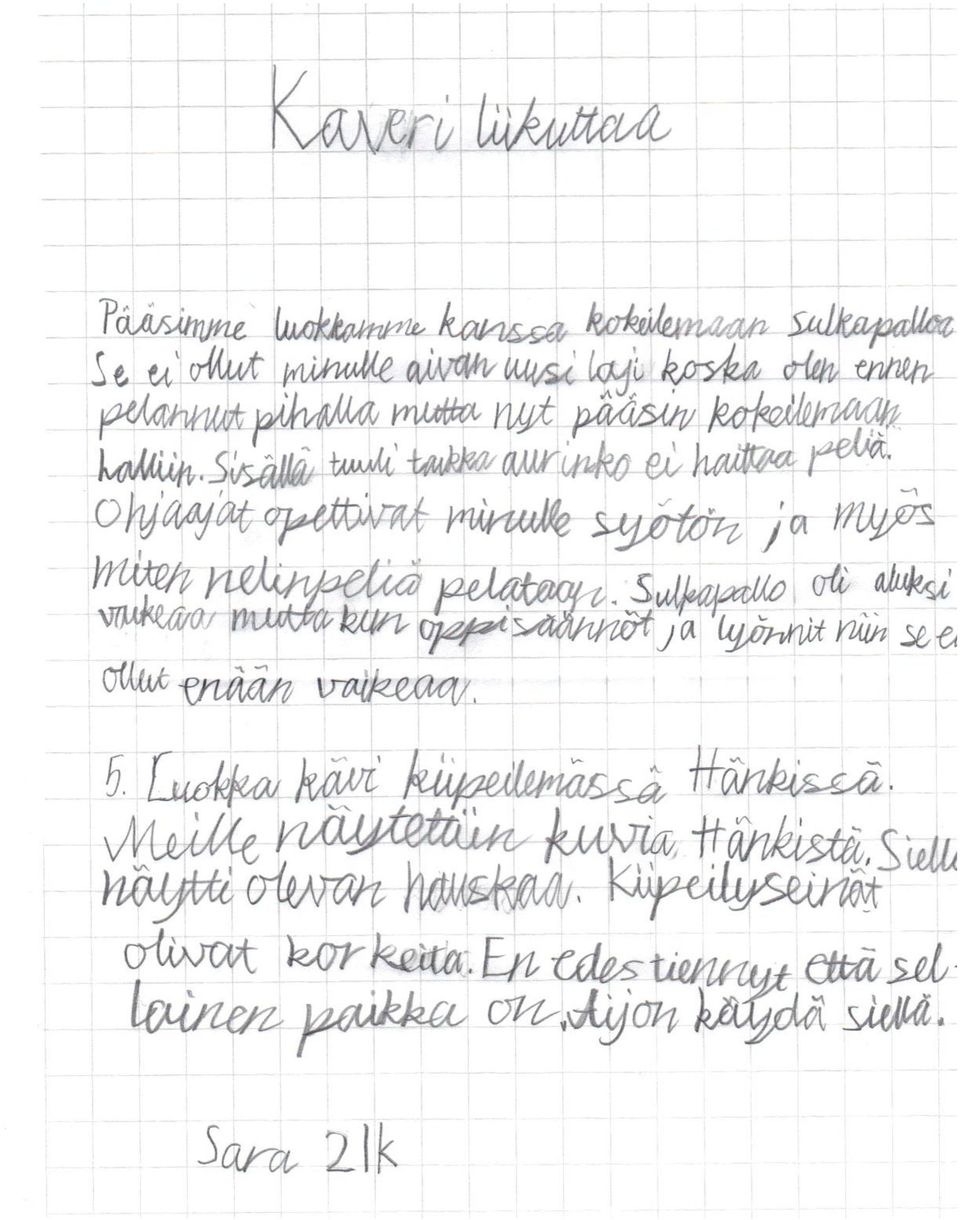 Kaveri liikuttaa
Pääsimme luokkamme kanssa kokeilemaan sulkapalloa
Se ei ollut minulle aivan uusi laji koska olen ennen
pelannut pihalla mutta nyt pääsin kokeilemaan
halliin. Sisällä tuuli taikka aurinko ei haittaa peliä.
Ohjaajat opettivat minulle syötön ja myös
miten nelinpeliä pelataan. Sulkapallo oli aluksi
vaikeaa mutta kun oppi säännöt ja lyönnit niin se ei
ollut enään vaikeaa.
5. Luokka kävi kiipeilemässä Hänkissä.
Meille näytettiin kuvia Hänkistä. Siellä
näytti olevan hauskaa. Kiipeilyseinät
olivat korkeita. En edes tiennyt että sel-
lainen paikka on. Aijon käydä siellä.
Sara 2lk